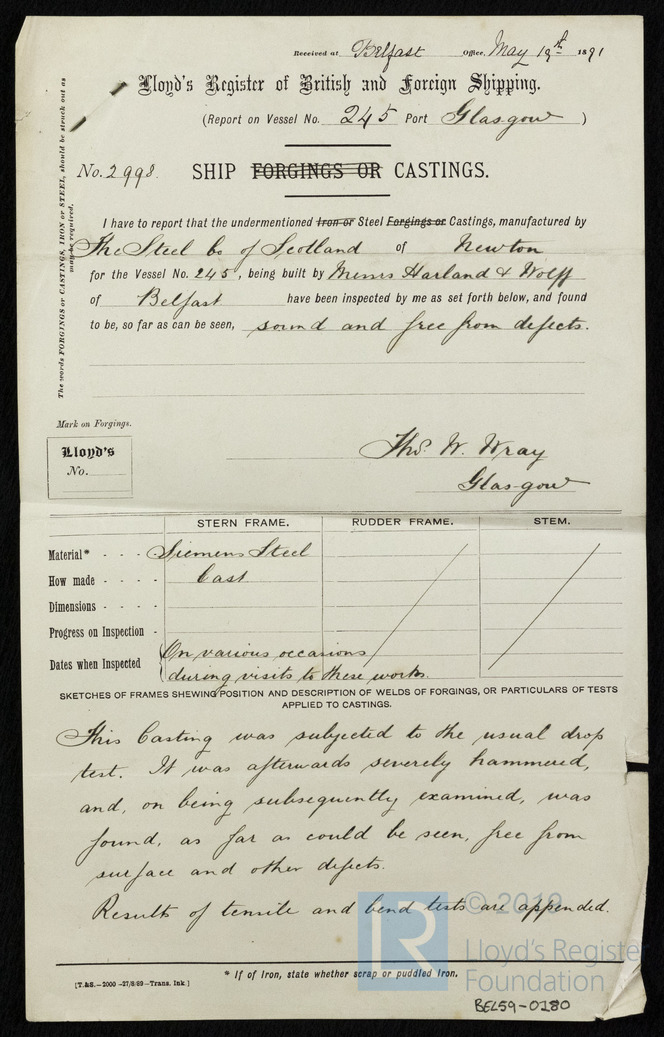 Received at Belfast Office, May 19th 1891
Lloyd's Register of British and Foreign Shipping.
(Report on Vessel No. 245 Port Glasgow )
No. 2998. SHIP FORGINGS OR CASTINGS.
The words FORGINGS or CASTINGS, IRON or STEEL, should be struck out as may be required.
I have to report that the undermentioned Iron or Steel Forgings or Castings, manufactured by
The Steel Co of Scotland of Newton
for the Vessel No. 245, being built by Messrs Harland & Wolff
of Belfast have been inspected by me as set forth below, and found
to be, so far as can be seen, sound and free from defects.
Mark on Forgings.
Lloyd's
No.
Thos. W. Wray
Glasgow
STERN FRAME. RUDDER FRAME. STEM.
Material* - - - Siemens Steel
How made - - - - Cast
Dimensions - - - -
Progress on Inspection -
Dates when Inspected On various occasions
during visits to these works.
SKETCHES OF FRAMES SHEWING POSITION AND DESCRIPTION OF WELDS OF FORGINGS, OR PARTICULARS OF TESTS
APPLIED TO CASTINGS.
This Casting was subjected to the usual drop
test. It was afterwards severely hammered,
and, on being subsequently examined, was
found, as far as could be seen, free from
surface and other defects.
Results of tensile and bend tests are appended.
© 2019
LR
Lloyd's Register
Foundation
* If of Iron, state whether scrap or puddled Iron.
[T.&S.—2000—27/8/89—Trans. Ink.]
BEL59-0180